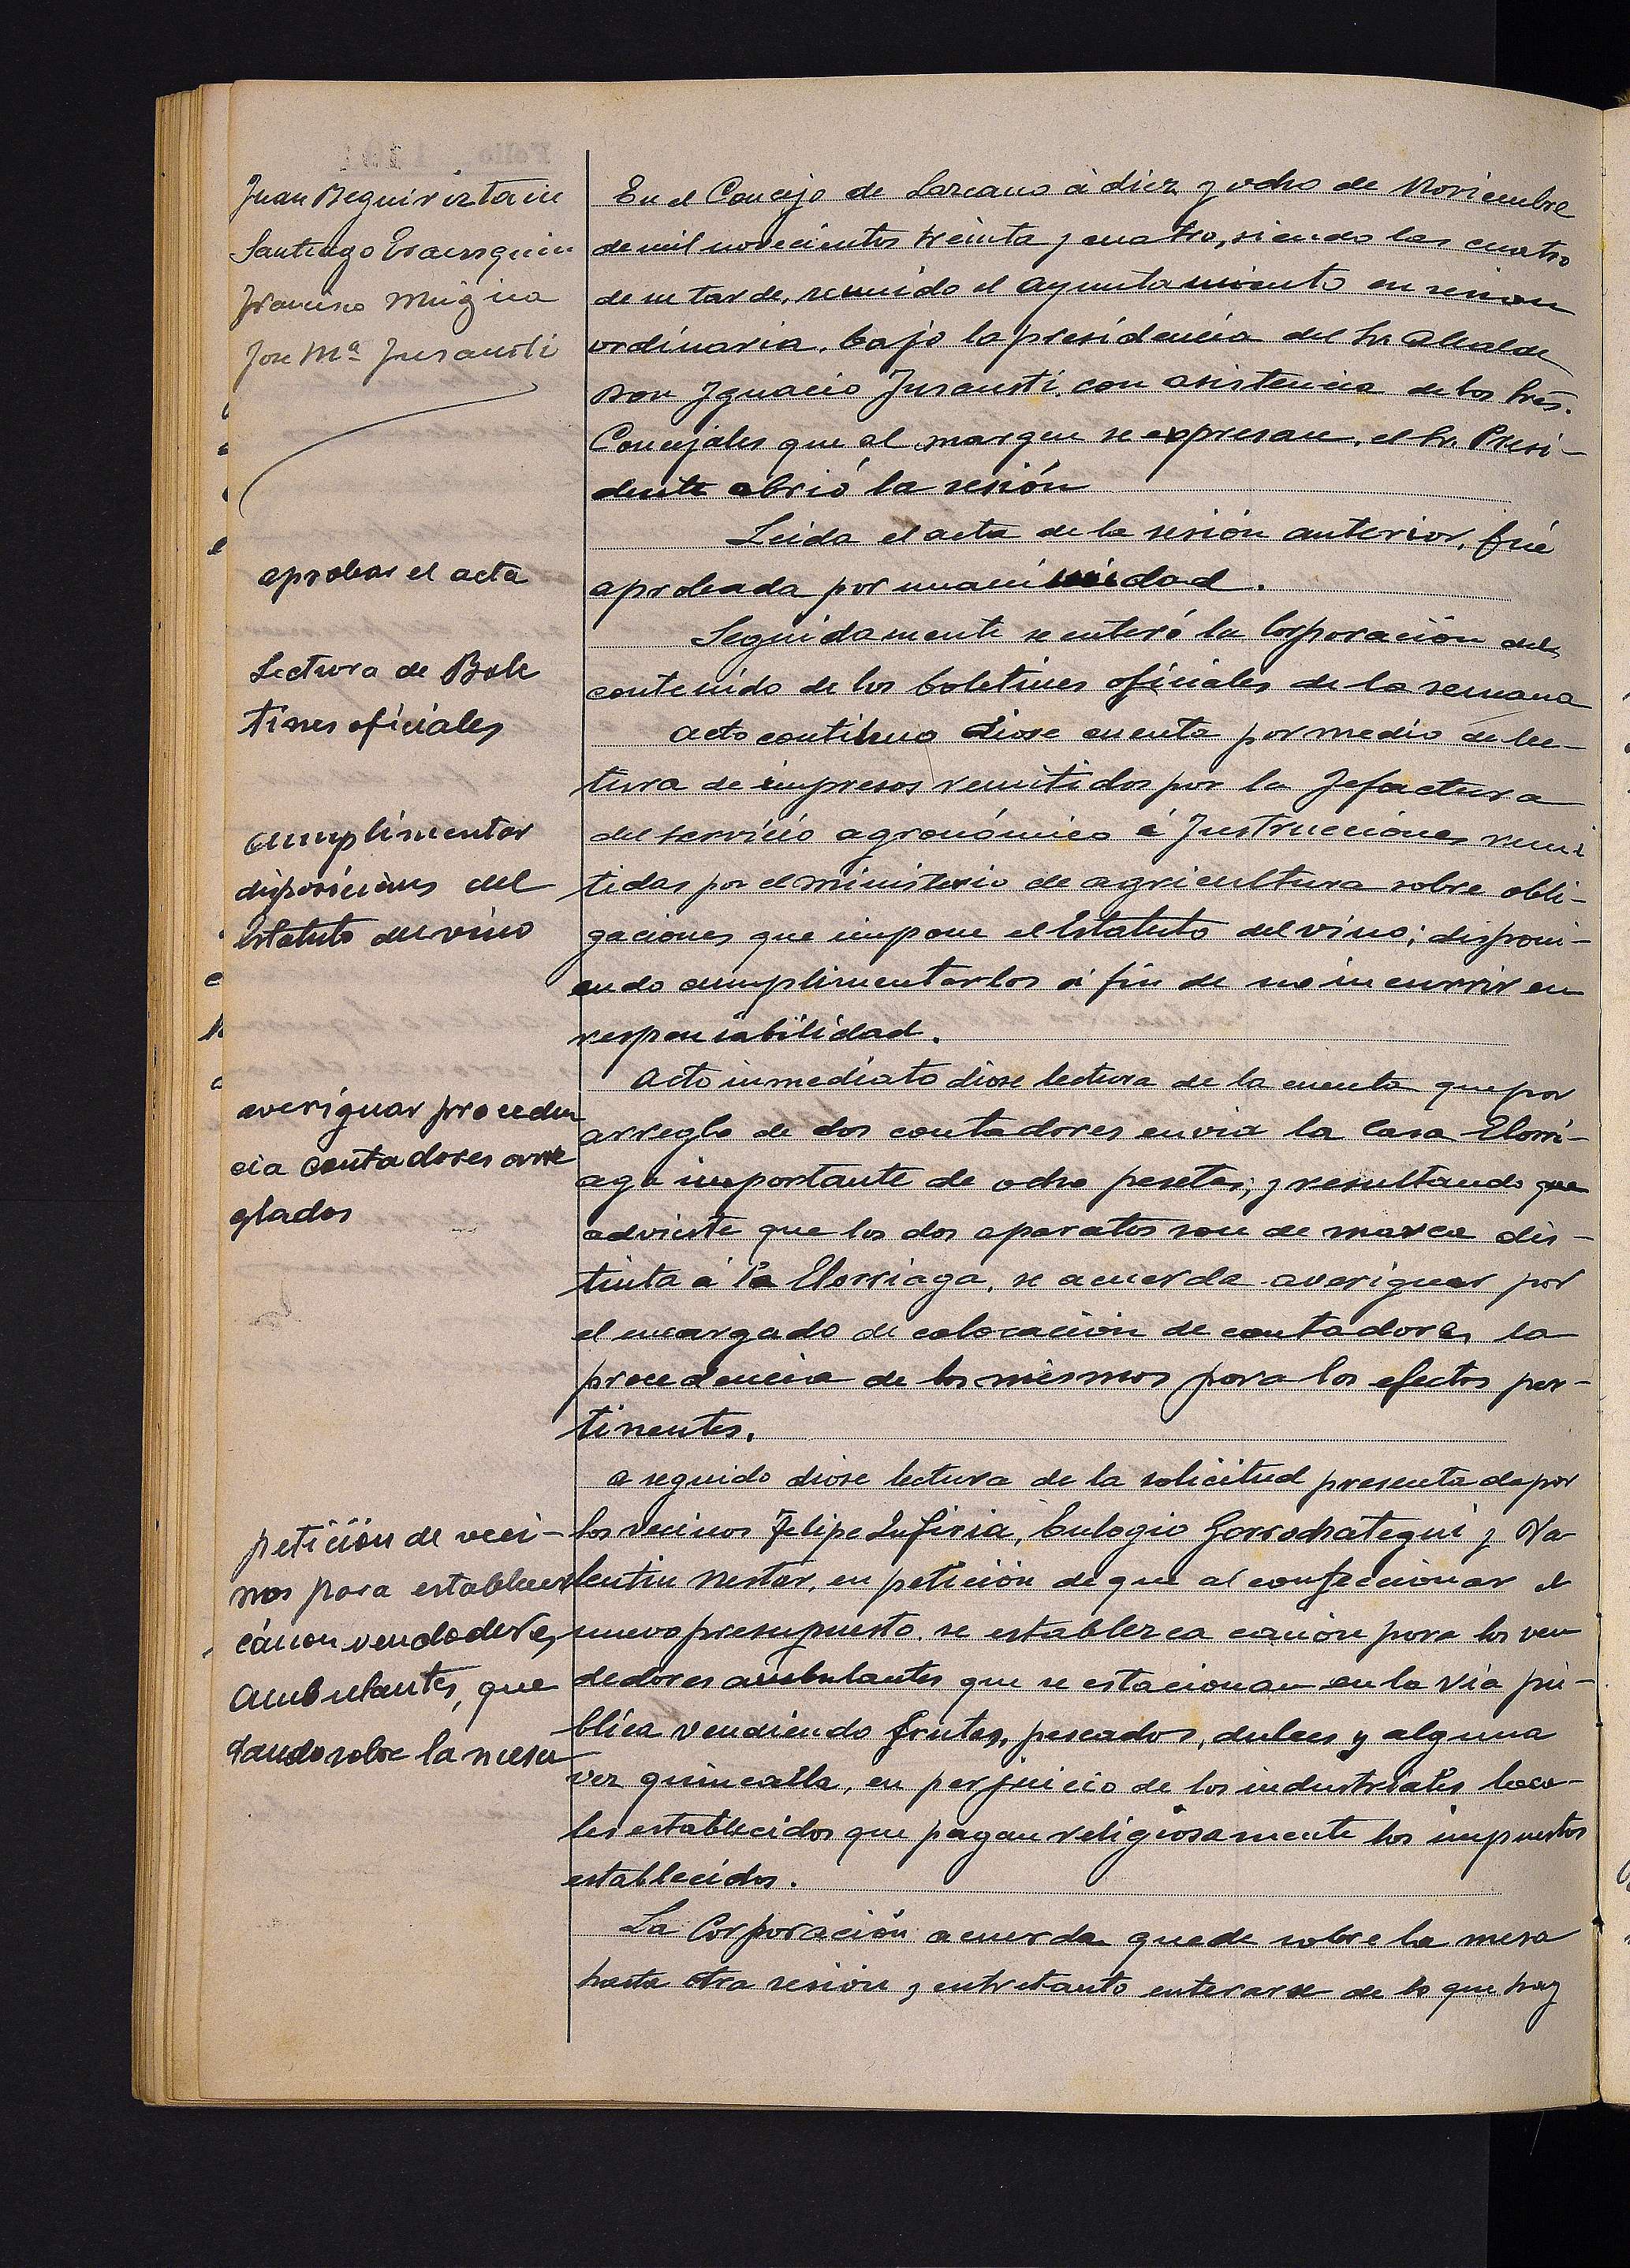 Juan Beguiristain
Santiago
Francisco Mugica
Jose Mª Insausti
aprobar el acta
Lectura de Bole
tines oficiales
cumplimentar
disposiciones del
Estatuto del vino
averiguar proceden
cia contadores arre
glados
petición de veci-
nos para establecer
cánon vendedores
ambulantes, que
dando sobre la mesa
En el Concejo de Lazcano á diez y ocho de Noviembre
de mil novecientos treinta y cuatro, siendo las cuatro
de su tarde, reunido el Ayuntamiento en sesion
ordinaria, bajo la presidencia del Sr. Alcalde
Don Ignacio Insausti, con asistencia de los Sres.
Concejales que al margen se expresan, el Sr. Presi-
dente abrió la sesión
Leida el acta de la sesión anterior, fué
aprobada por unanimidad.
Seguidamente se enteró la Corporación del
contenido de los boletines oficiales de la semana
Acto continuo diose cuenta por medio de lec-
tura de impresos remitidos por la Jefactura
del servicio agronómico é Instrucciones remi
tidas por el Ministerio de agricultura sobre obli-
gaciones que impone el Estatuto del vino; disponi-
endo cumplimentarlos á fin de no incurrir en
responsabilidad.
Acto inmediato diose lectura de la cuenta que por
arreglo de dos contadores envia la Casa Elorri-
aga importante de ocho pesetas; y resultando que
advierte que los dos aparatos son de marca dis-
tinta á la Elorriaga, se acuerda averiguar por
el encargado de colocación de contadores la
procedencia de los mismos para los efectos per-
tinentes.
A seguido diose lectura de la solicitud presentada por
los vecinos Felipe Eulogio Gorrochategui y Va
lentin Nestar, en petición de que al confeccionar el
nuevo presupuesto se establezca canon para los ven
dedores ambulantes que se estacionan en la via pú-
blica vendiendo frutas, pescados, dulces y alguna
vez quincalla, en perjuicio de los industriales loca-
les establecidos que pagan religiosamente los impuestos
establecidos.
La Corporación acuerda quede sobre la mesa
hasta otra sesión y entretanto enterarse de lo que hay